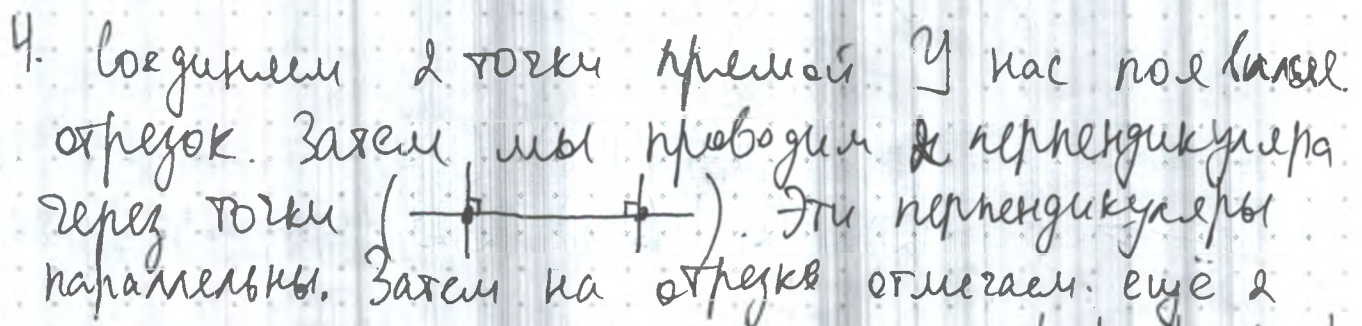 4. Соединяем 2 точки прямой У нас появился
отрезок. Затем мы проводим 2 перпендикуляра
через точки ( ). Эти перпендикуляры
параллельны. Затем на отрезке отмечаем ещё 2